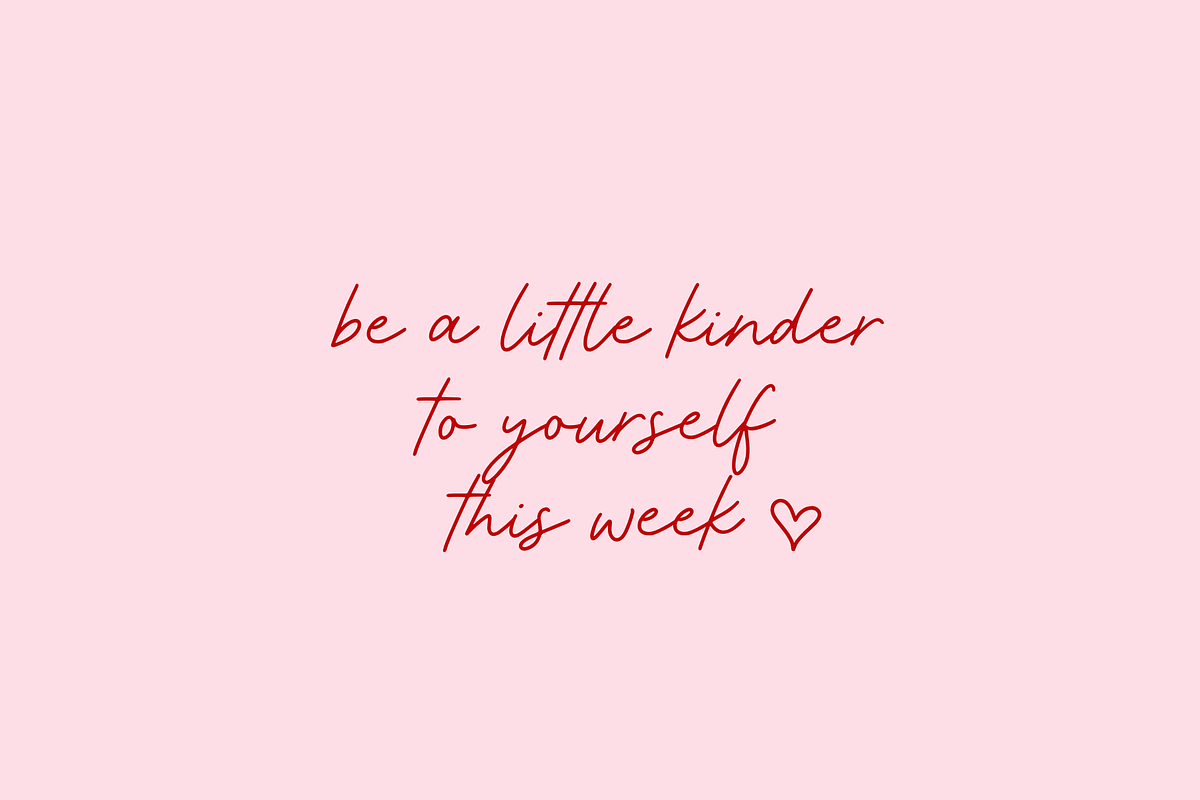 be a little kinder
to yourself
this week ♡